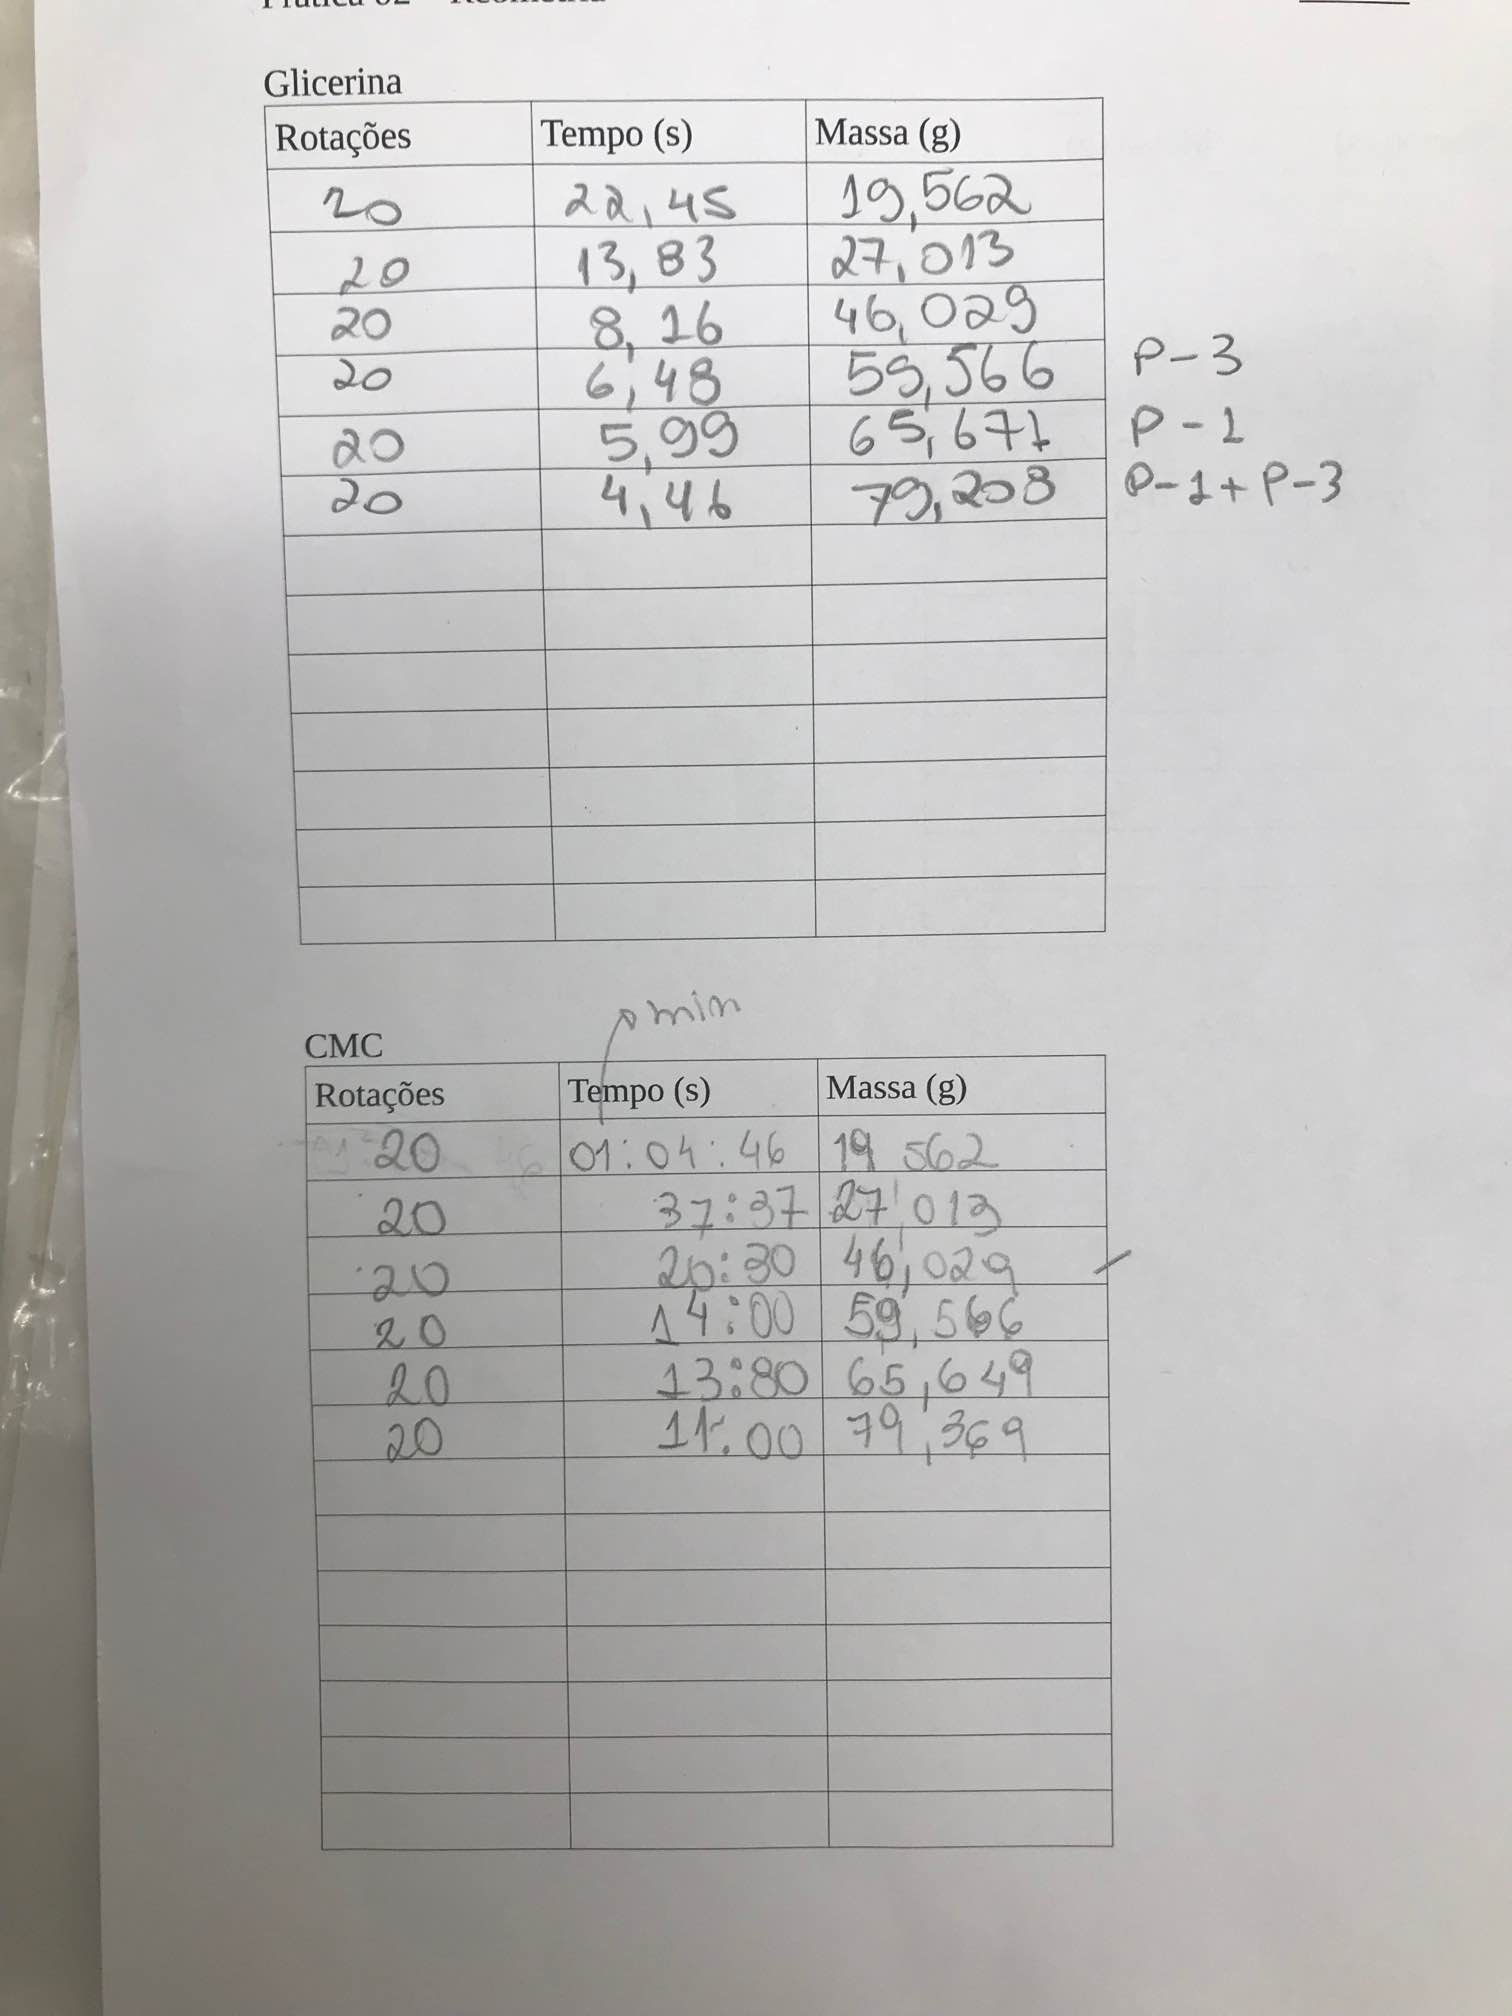 Prática 02 - Reometria
Glicerina
Rotações Tempo (s) Massa (g)
20 22,45 19,562
20 13,83 27,013
20 8,16 46,029
20 6,48 59,566 P-3
20 5,99 65,671 P-1
20 4,46 79,208 P-1+P-3
min
CMC
Rotações Tempo (s) Massa (g)
20 01:04:46 19 562
20 37:37 27,013
20 20:30 46,029
20 14:00 59,566
20 13:80 65,649
20 11:00 79,369